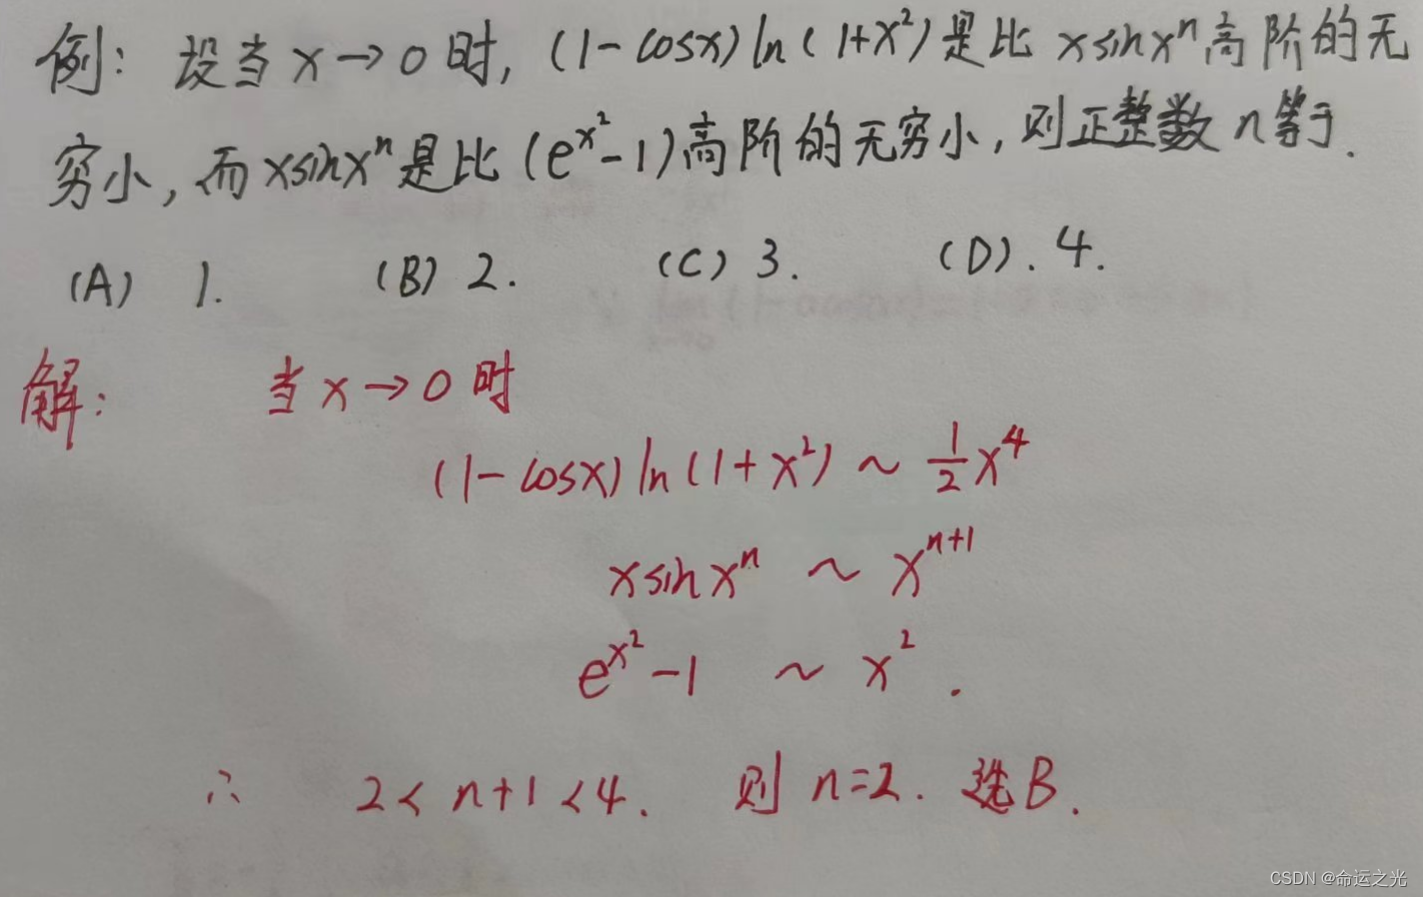 例: 设当 x→0 时, (1-cosx)ln(1+x²)是比 xsinxⁿ高阶的无
穷小, 而 xsinxⁿ是比 (e^{x²}-1)高阶的无穷小, 则正整数 n等于.
(A) 1. (B) 2. (C) 3. (D). 4.
解: 当 x→0 时
(1-cosx)ln(1+x²) ~ ½x⁴
xsinxⁿ ~ xⁿ⁺¹
e^{x²}-1 ~ x².
∴ 2<n+1<4. 则 n=2. 选B.
CSDN @命运之光